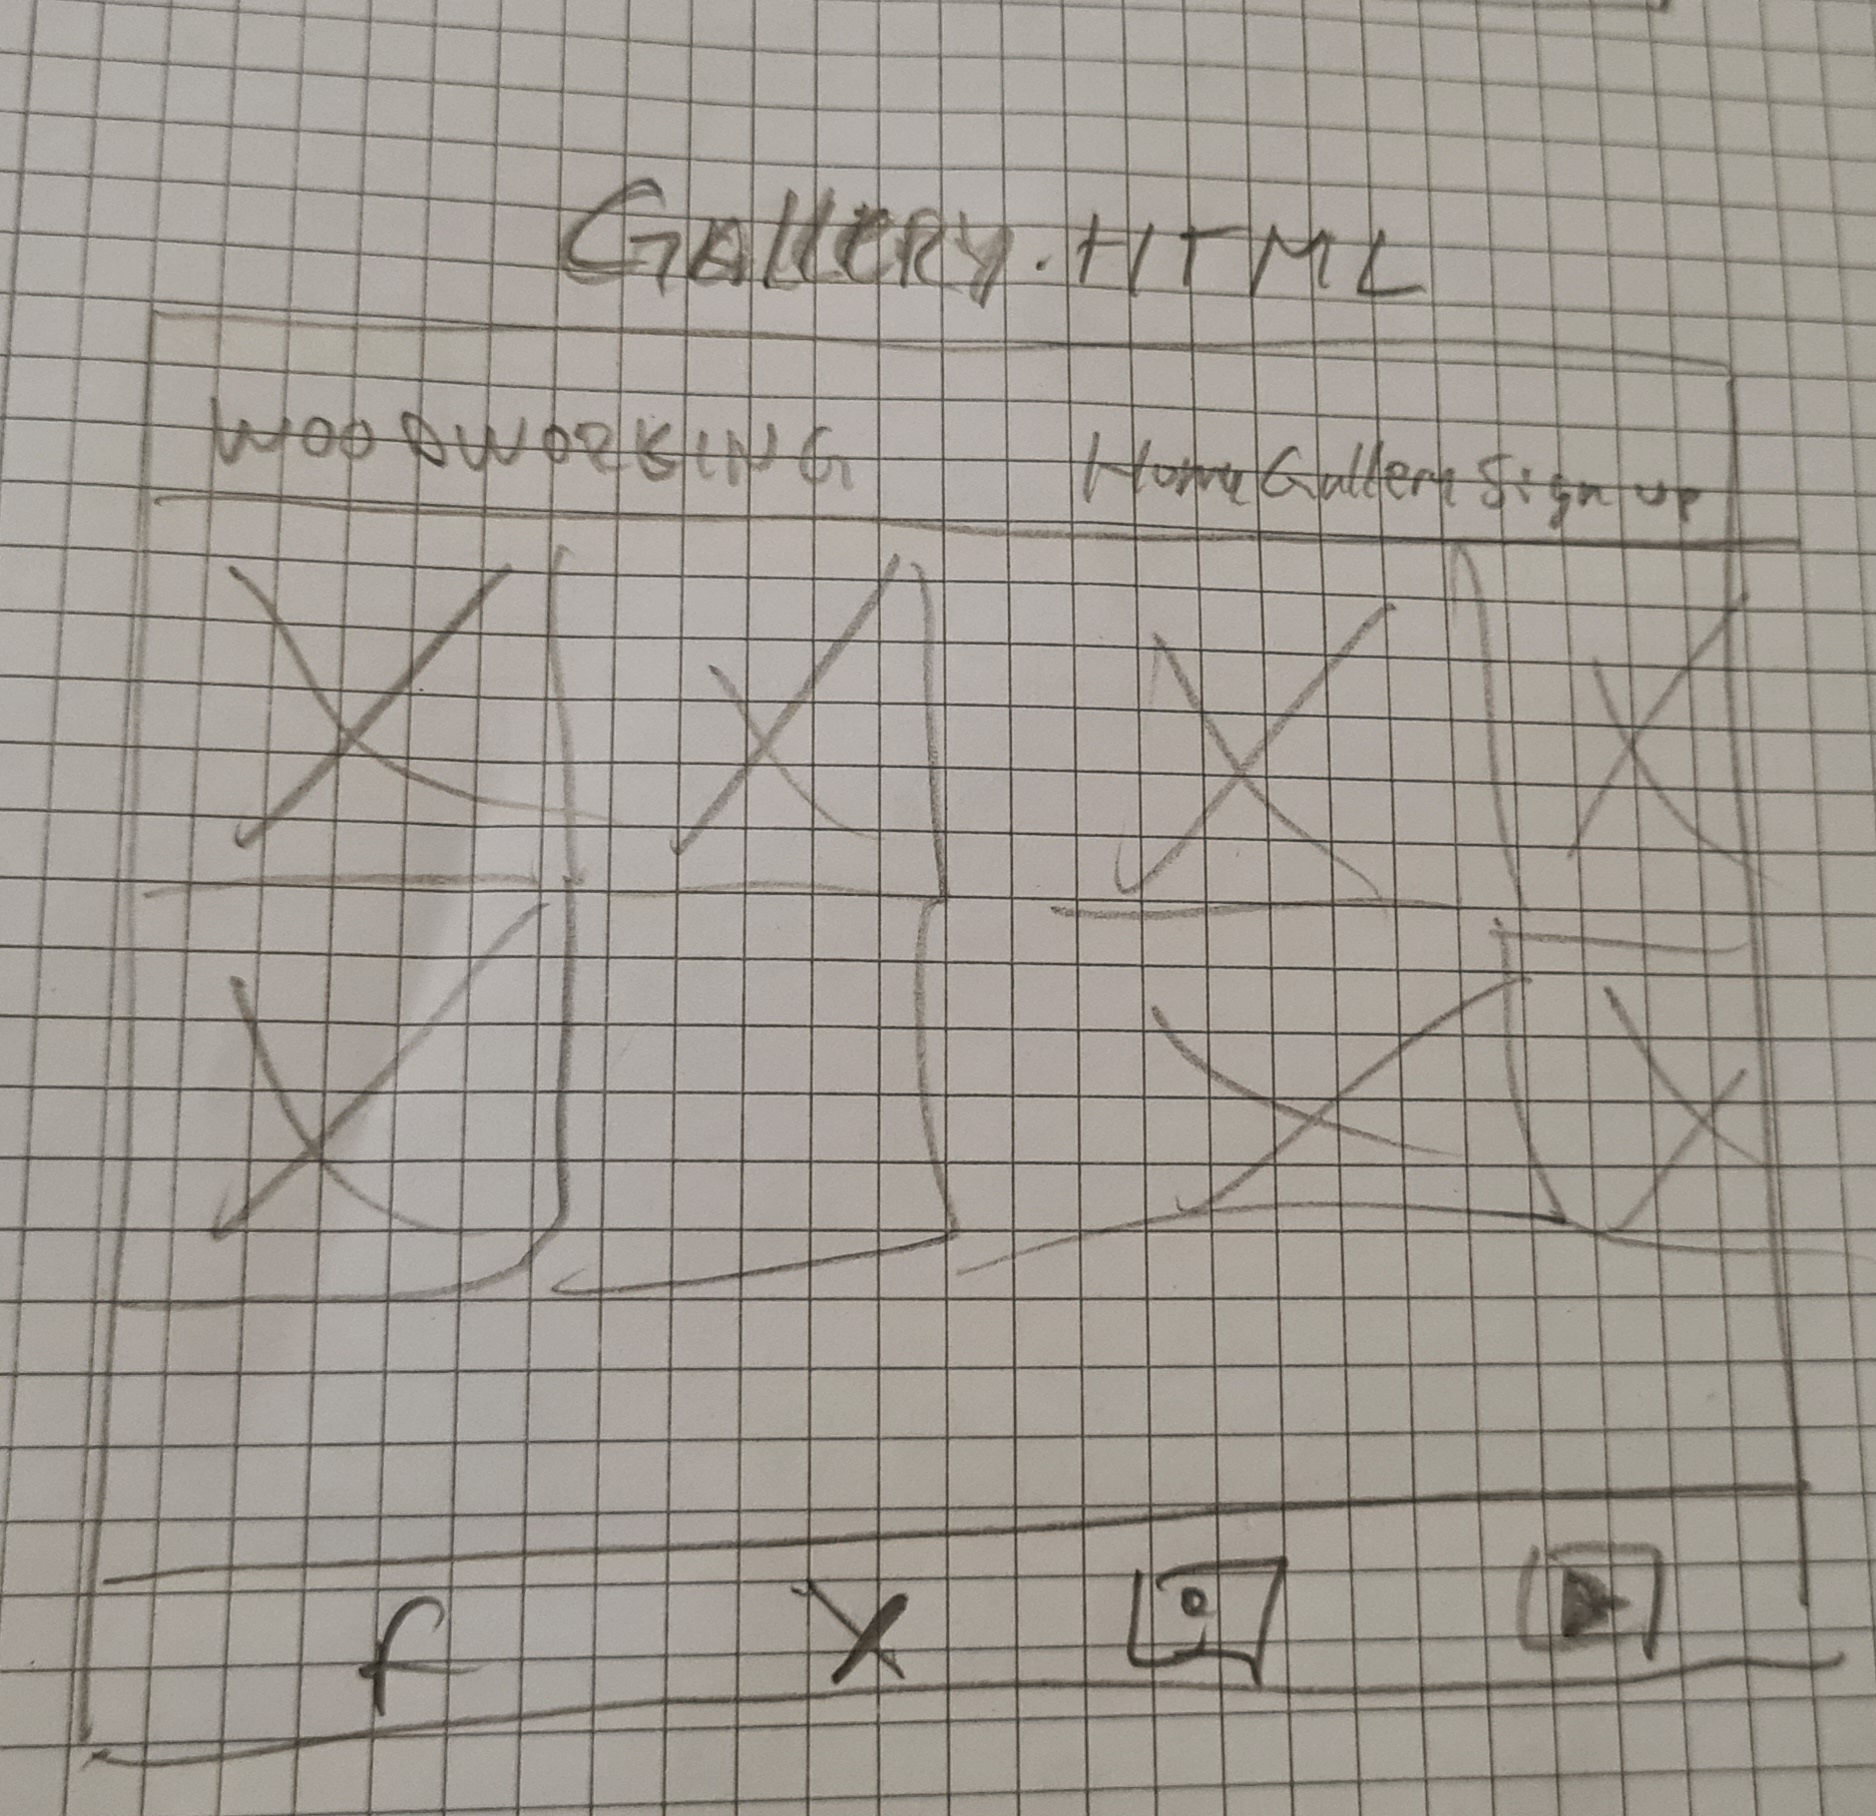 GAllERY.HTML
WOODWORKING Home Gallery Sign up
f X